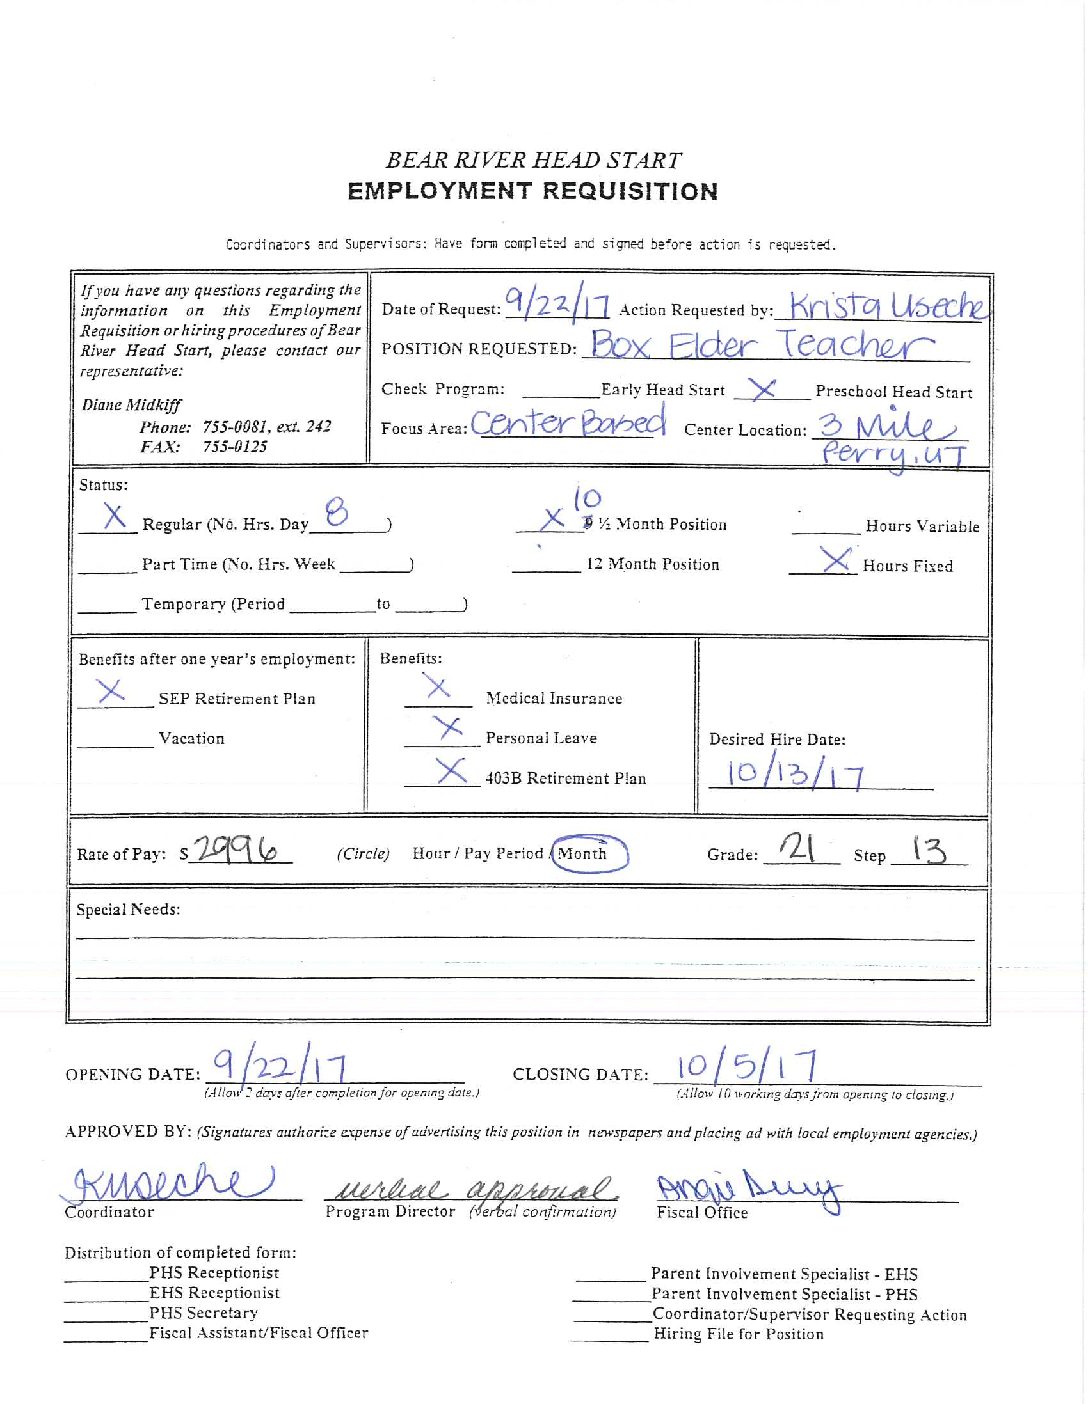 BEAR RIVER HEAD START
EMPLOYMENT REQUISITION
Coordinators and Supervisors: Have form completed and signed before action is requested.
If you have any questions regarding the
information on this Employment
Requisition or hiring procedures of Bear
River Head Start, please contact our
representative:
Diane Midkiff
Phone: 755-0081, ext. 242
FAX: 755-0125
Date of Request: 9/22/17 Action Requested by: Krista Useche
POSITION REQUESTED: Box Elder Teacher
Check Program: ______ Early Head Start X Preschool Head Start
Focus Area: Center Based Center Location: 3 Mile
Perry, UT
Status:
X Regular (No. Hrs. Day 8 ) X 10 ½ Month Position ______ Hours Variable
______ Part Time (No. Hrs. Week ______) ______ 12 Month Position X Hours Fixed
______ Temporary (Period ______ to ______)
Benefits after one year's employment:
X SEP Retirement Plan
______ Vacation
Benefits:
X Medical Insurance
X Personal Leave
X 403B Retirement Plan
Desired Hire Date:
10/13/17
Rate of Pay: $ 2996 (Circle) Hour / Pay Period / Month Grade: 21 Step 13
Special Needs:
OPENING DATE: 9/22/17 CLOSING DATE: 10/5/17
(Allow 2 days after completion for opening date.) (Allow 10 working days from opening to closing.)
APPROVED BY: (Signatures authorize expense of advertising this position in newspapers and placing ad with local employment agencies.)
KUseche verbal approval Angie
Coordinator Program Director (verbal confirmation) Fiscal Office
Distribution of completed form:
______ PHS Receptionist ______ Parent Involvement Specialist - EHS
______ EHS Receptionist ______ Parent Involvement Specialist - PHS
______ PHS Secretary ______ Coordinator/Supervisor Requesting Action
______ Fiscal Assistant/Fiscal Officer ______ Hiring File for Position